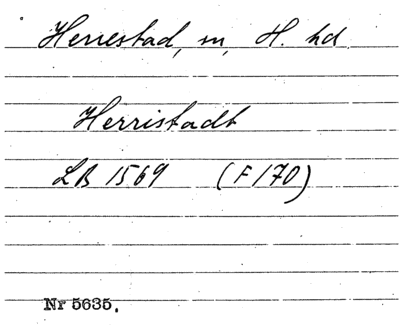 Herrestad, m, H. hd
Herristadt
LB 1569 (F 170)
Nr 5635.